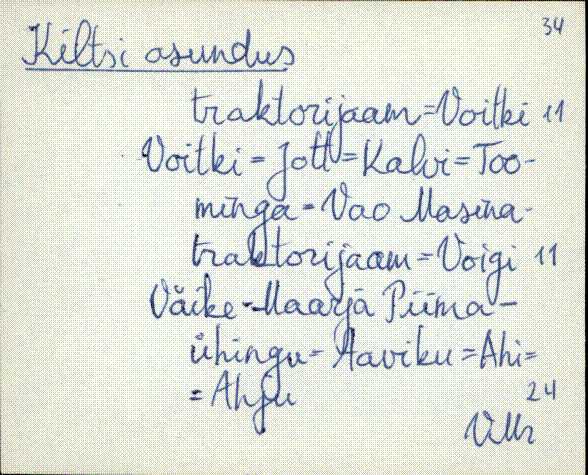 34
Kiltsi asundus
traktorijaam=Voitki 11
Voitki=Jott=Kalvi=Too-
minga=Vao Masina-
traktorijaam=Voigi 11
Väike-Maarja Piima-
ühingu=Aaviku=Ahi=
=Ahju 24
VMr